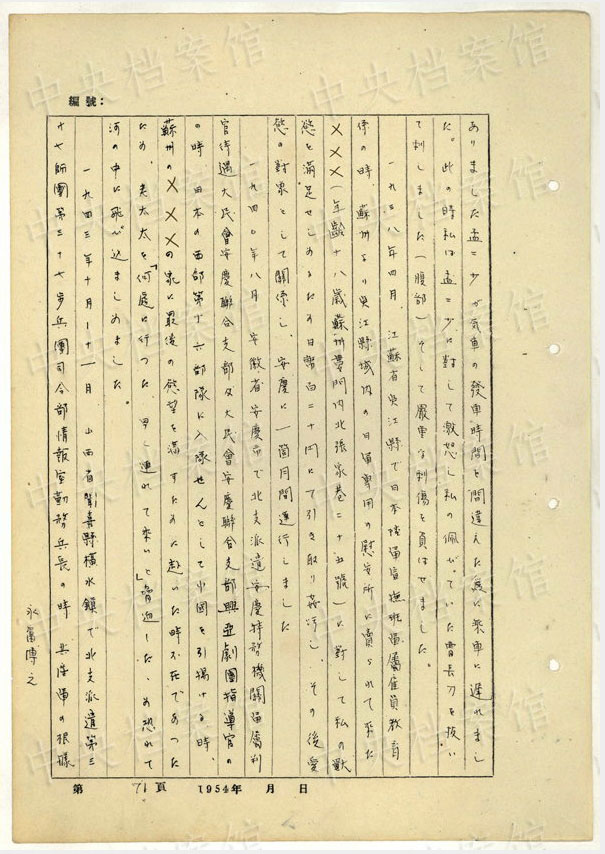 編號：
ありました孟二少が気車の發車時間を間違えた為に乘車に遅れまし
た。此の時私は孟二少に對して激怒し私の佩がていた曹長刀を抜い
て刺しました（腹部）そして嚴重な刺傷を負はせました。
一九三八年四月 江蘇省吳江縣で日本 宣撫班 屬雇員教育
係の時、蘇州より吳江縣城内の日 專用の慰安所に賣られて來た
×××（年齢十八歳蘇州婁門内北張家巷二十五號）に對して私の獸
慾を滿足せしめるため日幣百二十円にて引き取り姦淫し、その後愛
慾の對象として關係し、安慶に一箇月間連行しました
一九四〇年八月 安徽省安慶市で北支派遣安慶特務機關 屬判
官待遇大民會安慶聯合支部及大民會安慶聯合支部興亞劇團指導官の
の時日本の西部第十六部隊に入隊せんとして中國を引揚ける時、
蘇州の×××の家に最後の慾望を滿すために赴いた時不在であつた
ため、老太太を「何處に行つた 早く連れて來い」と脅迫した、め恐れて
河の中に飛び込ましめました。
一九四三年十月－十一月 山西省聞喜縣橫水鎮で北支派遣第三
十七師團第三十七步兵團司令部情報室勤務兵長の時 兵 團の根據
永富博之
第 71頁 1954年 月 日
中央档案馆